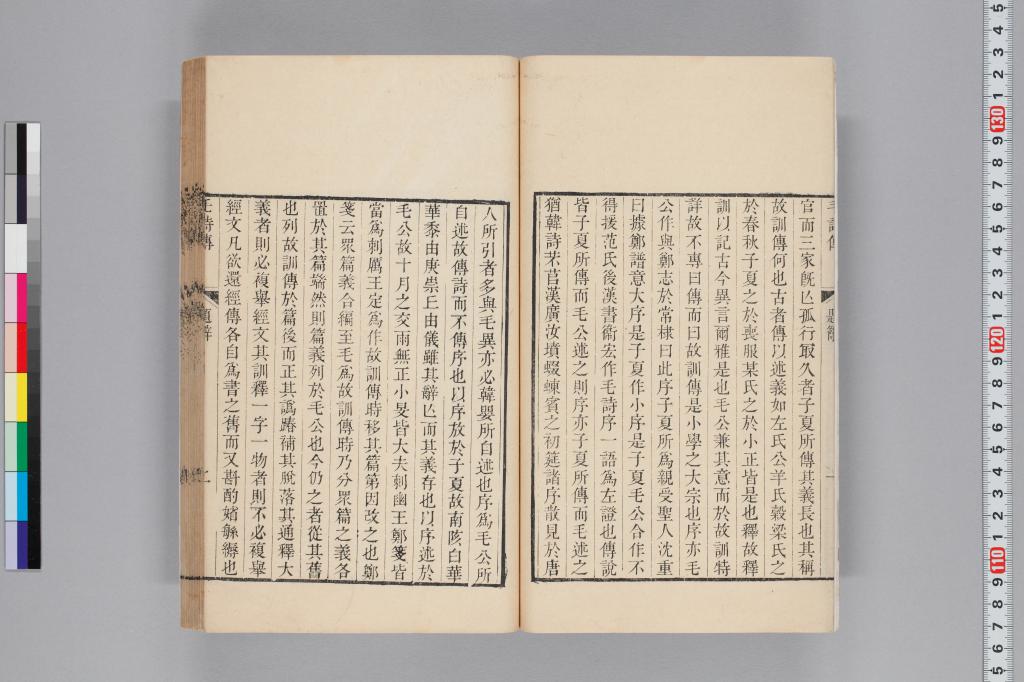 官而三家旣亾孤行㝡久者子夏所傳其義長也其稱
故訓傳何也古者傳以述義如左氏公羊氏穀梁氏之
於春秋子夏之於喪服某氏之於小正皆是也釋故釋
訓以記古今異言爾雅是也毛公兼其意而於故訓特
詳故不專曰傳而曰故訓傳是小學之大宗也序亦毛
公作與鄭志於常棣曰此序子夏所爲親受聖人沈重
曰據鄭譜意大序是子夏作小序是子夏毛公合作不
得援范氏後漢書衞宏作毛詩序一語爲左證也傳說
皆子夏所傳而毛公述之則序亦子夏所傳而毛述之
猶韓詩芣苢漢廣汝墳蝃蝀賓之初筵諸序散見於唐
人所引者多與毛異亦必韓嬰所自述也序爲毛公所
自述故傳詩而不傳序也以序放於子夏故南陔白華
華黍由庚崇丘由儀雖其辭亾而其義存也以序述於
毛公故十月之交雨無正小旻皆大夫刺幽王鄭箋皆
當爲刺厲王定爲作故訓傳時移其篇第因改之也鄭
箋云眾篇義合編至毛爲故訓傳時乃分眾篇之義各
置於其篇端然則篇義列於毛公也今仍之者從其舊
也列故訓傳於篇後而正其譌踳補其脫落其通釋大
義者則必複舉經文其訓釋一字一物者則不必複舉
經文凡欲還經傳各自爲書之舊而又斟酌媘緐縟也
毛詩傳 題辭